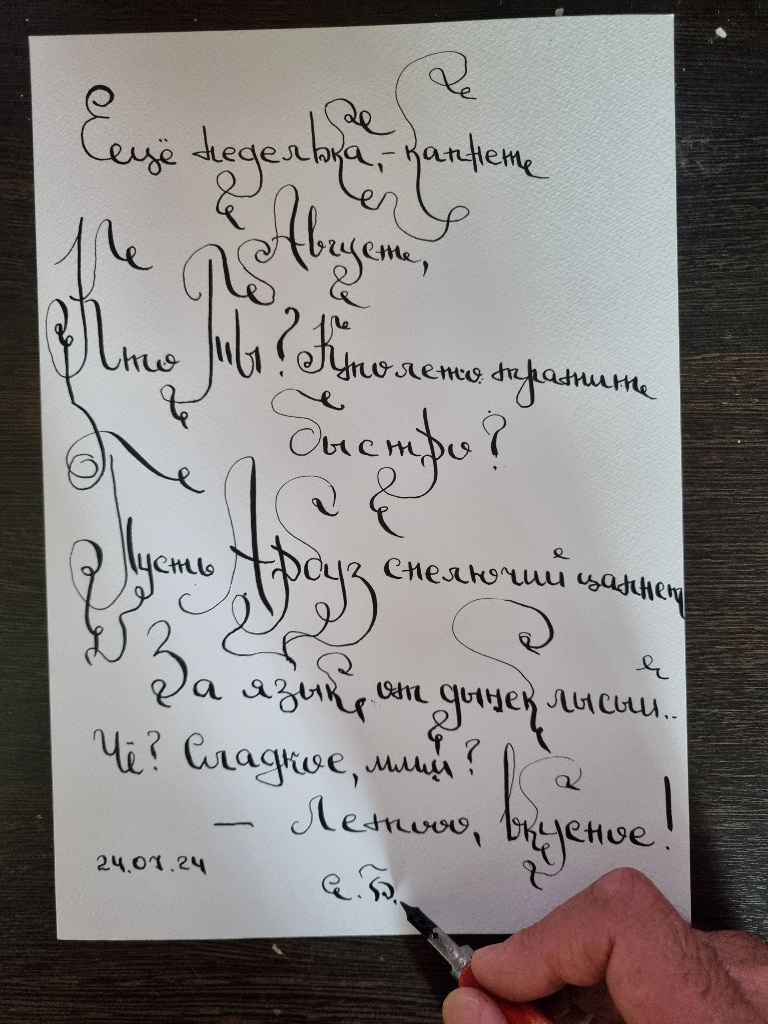 Ещё неделька,- капнет
Август,
Кто Вы? Кто лето тратит
быстро?
Пусть Арбуз спелючий цапнет
За язык, от дынек лысый..
Чё? Сладкое, ммм?
— Летооо, вкусное!
24.07.24
А.Б.